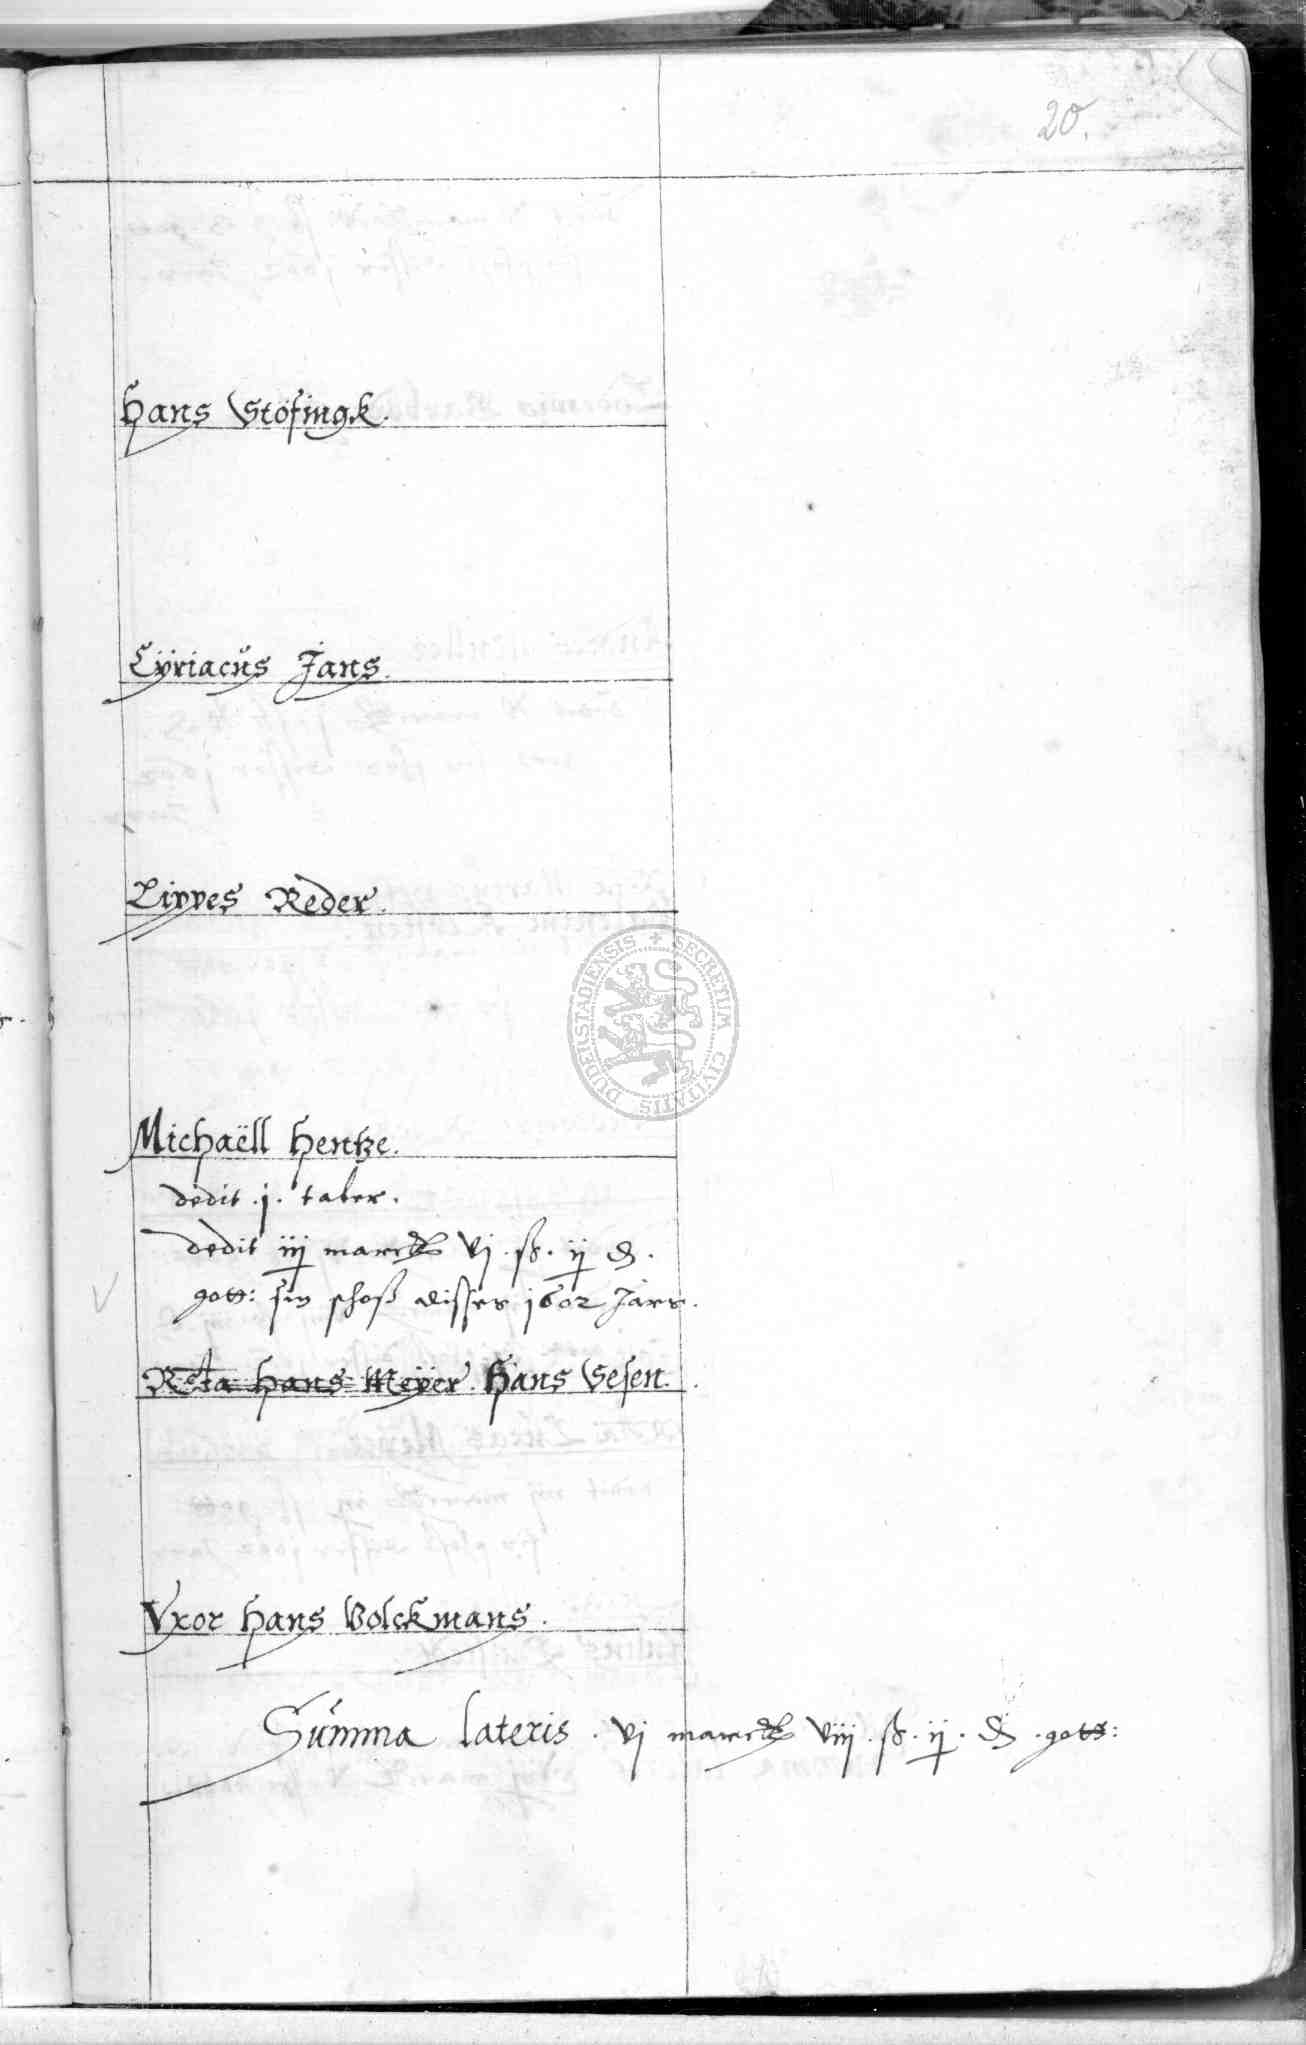 20.
Hans Stöfingk.
Cÿriacus Jans.
Lippes Reder.
DUDERSTADIENSIS + SECRETUM CIVITATIS
Michaëll Hentze.
dedit .j. taler.
dedit iij marck vj . ß . ij ₰.
gott: sin schoß disses 1602 Jars.
Reta Hans Meÿer. Hans Sesen.
Vxor Hans Volckmans.
Summa lateris . vj marck viij . ß . ij . ₰ . gott: